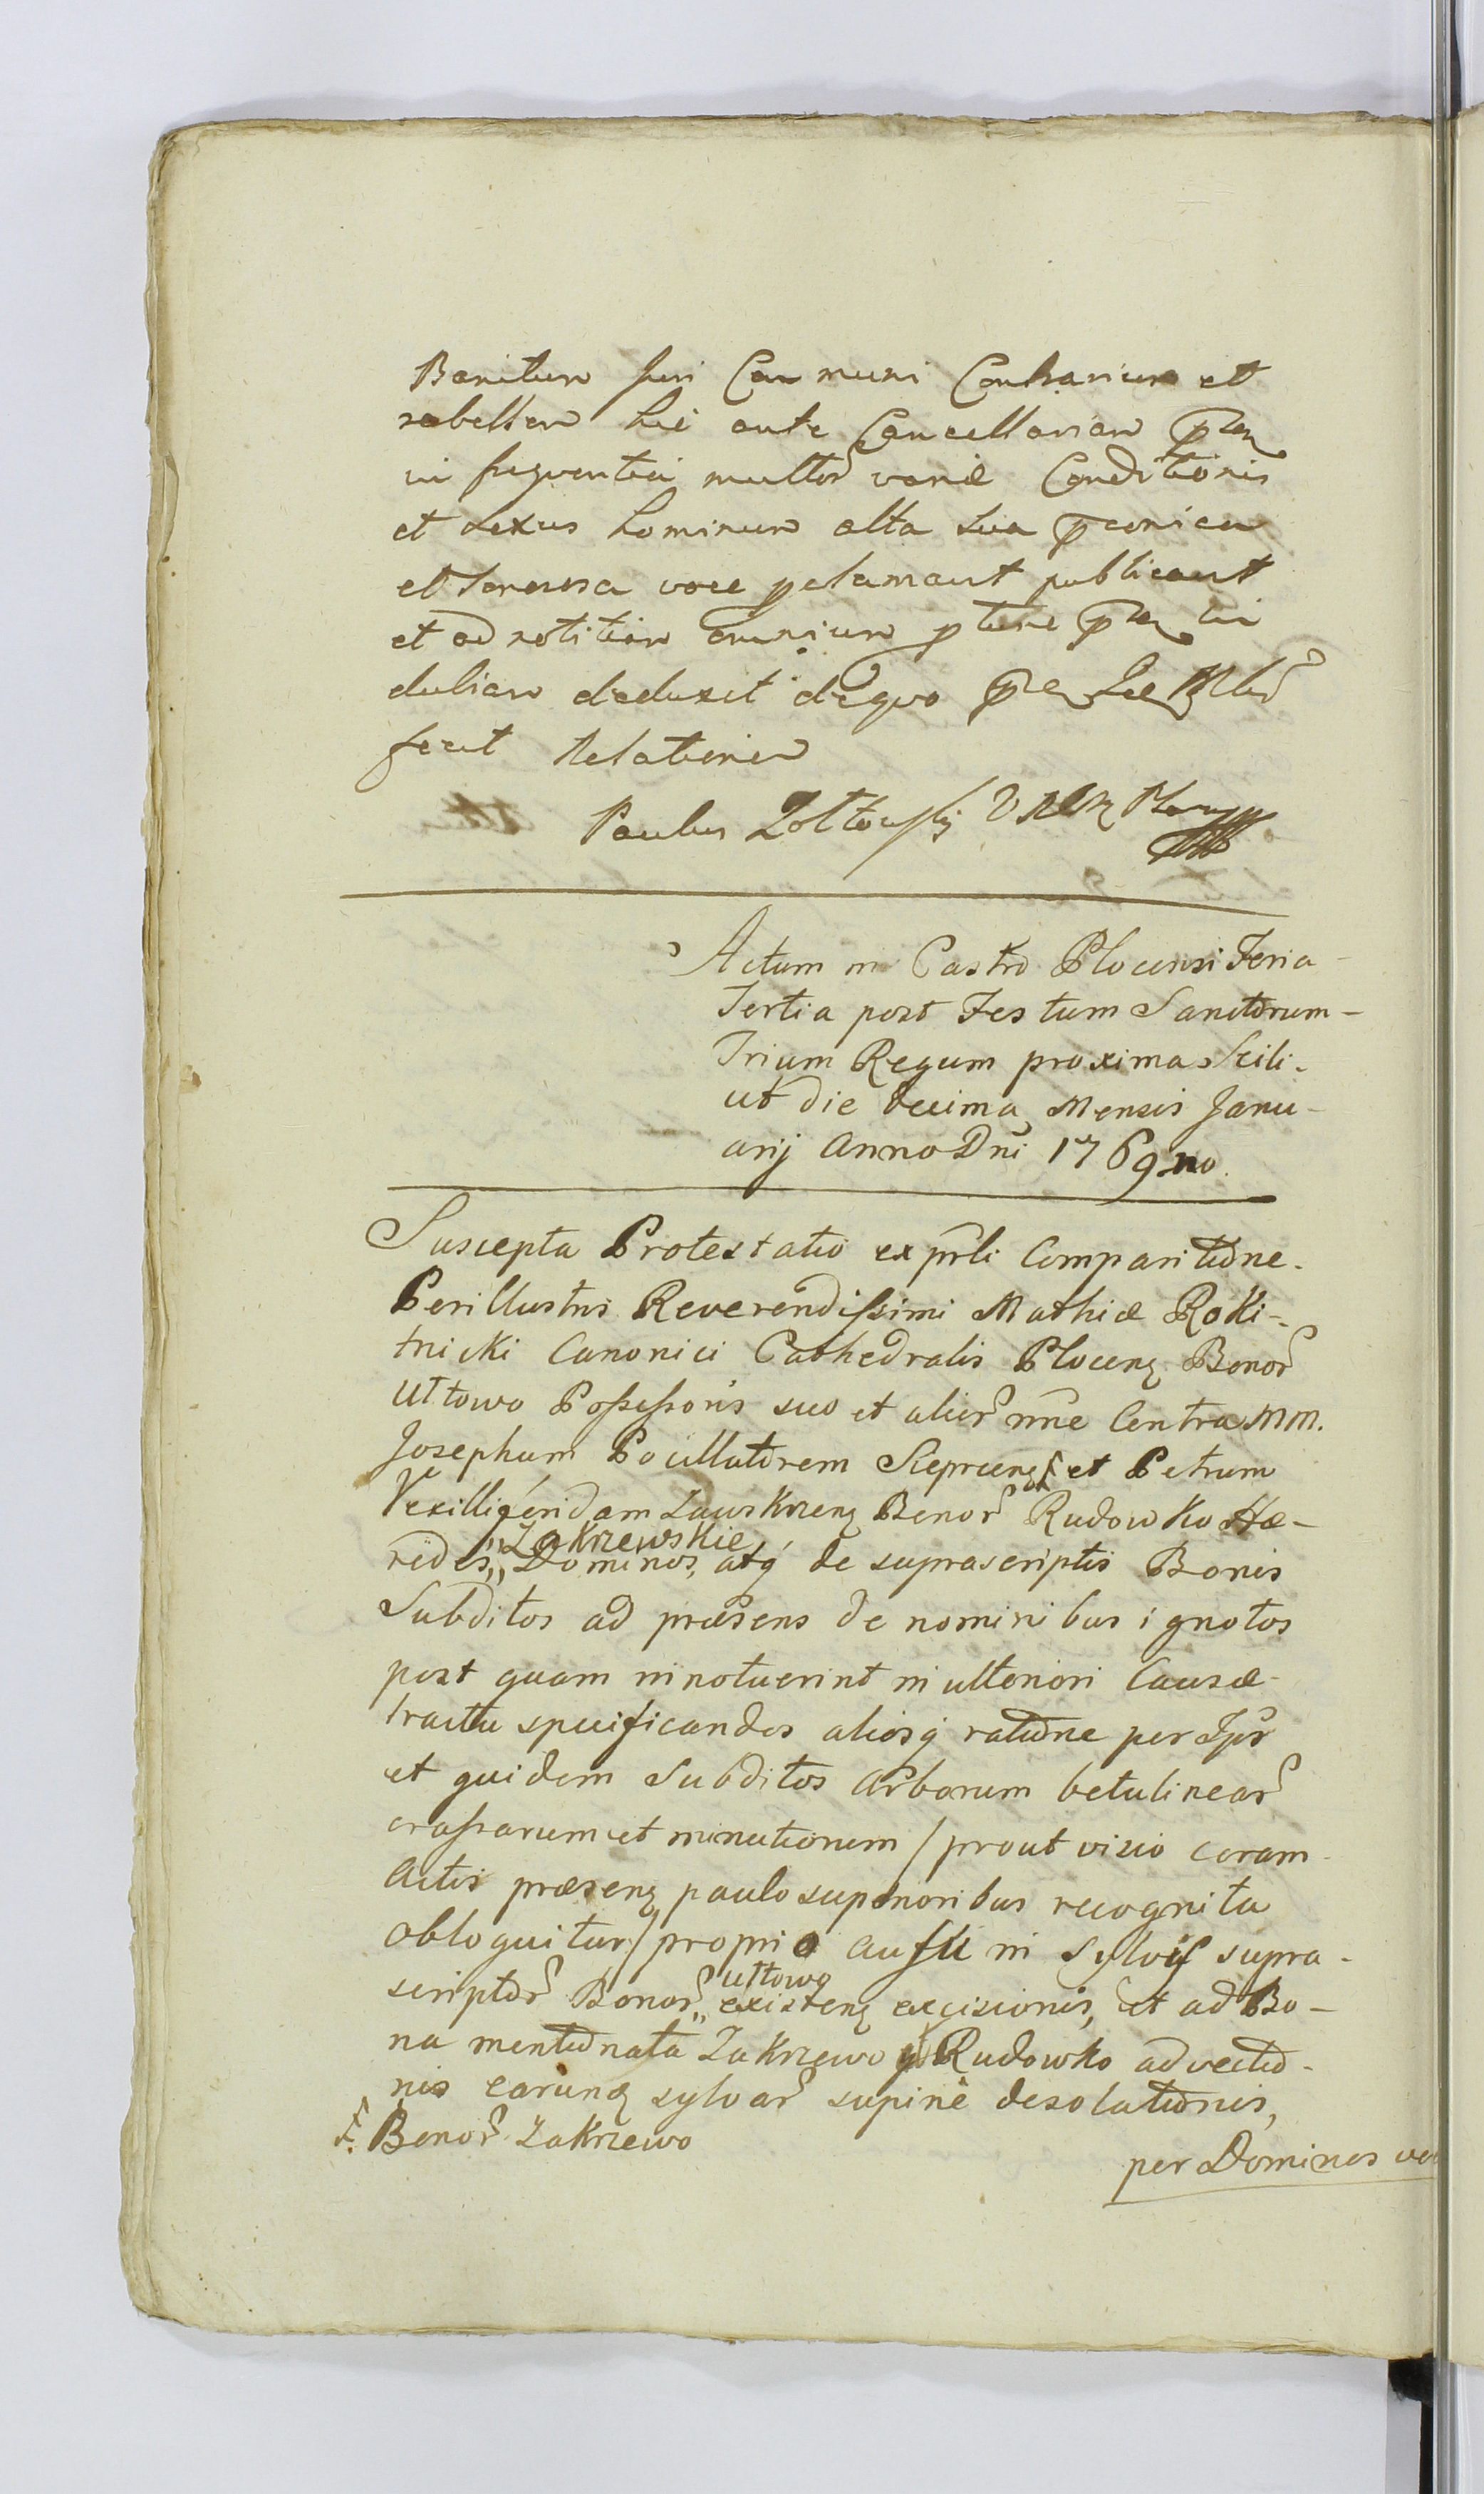 Banitum Juri Communi Contrarium et
rebellem hic ante Cancellariam
in frequentia multor variæ Conditionis
et sexus hominum alta sua pconica
et sonorosa voce pclamavit publicavit
et ad notitiam omnium
dubiam deduxit deqvo
fecit Relationem
Paulus Zołtowski
Actum in Castro Plocensi Feria
Tertia post Festum Sanctorum
Trium Regum proxima Scili-
cet die decima Mensis Janu-
arij Anno Dni 1769no.
Suscepta Protestatio ex prli Comparitione
Perillustris Reverendissimi Mathiæ Roki-
tnicki Canonici Cathedralis Plocens Bonor
Uttowo Possessoris suo et alior nne Contra MM.
Josephum Pocillatorem Sieprcens et Petrum
Vexilligeridam Zawskrzens Bonor Rudowko Hæ-
redes,, Zakrzewskie Dominos, atq de suprascriptis Bonis
Subditos ad præsens de nominibus ignotos
post quam innotuerint in ulteriori Causæ
tractu specificandos aliosq ratione per Ipsos
et quidem Subditos Arborum betulinear
crassarum et minutiorum / prout visio coram
Actis præsens paulo superioribus recognita
obloquitur / proprio ausu in Sylvis supra-
scriptor Bonor,, uttowo existens excisionis, et ad Bo-
na mentionata Zakrzewo Rudowko advectio-
nis earunq sylvar supinè desolationis,
Bonor Zakrzewo
per Dominos